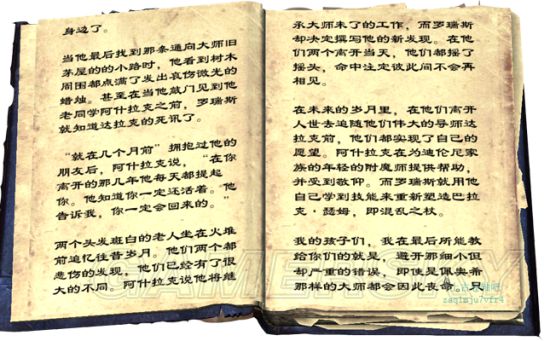 身边了。
当他最后找到那条通向大师旧
茅屋的的小路时，他看到树木
周围都点满了发出哀伤微光的
蜡烛。甚至在当他敲门见到他
老同学阿什拉克之前，罗瑞斯
就知道达拉克的死讯了。
“就在几个月前”拥抱过他的
朋友后，阿什拉克说，“在你
离开的那几年他每天都提起
你。他知道你一定还活着。他
告诉我，你一定会回来的。”
两个头发斑白的老人坐在火堆
前追忆往昔岁月，他们两个都
悲伤的发现，他们已经有了很
大的不同。阿什拉克说他将继
承大师未了的工作，而罗瑞斯
却决定撰写他的新发现。在他
们两个离开当天，他们都摇了
摇头，命中注定彼此间不会再
相见。
在未来的岁月里，在他们离开
人世去追随他们伟大的导师达
拉克前，他们都实现了自己的
愿望。阿什拉克在为迪伦尼家
族的年轻的附魔师提供帮助，
并受到敬仰。而罗瑞斯就用他
自己学到技能来重新塑造巴拉
克·瑟姆，即混乱之杖。
我的孩子们，我在最后所能教
给你们的就是，避开那细小但
却严重的错误，即使是佩奥希
那样的大师都会因此丧命。只
GAMERSKY
zaqtmju7vfr4